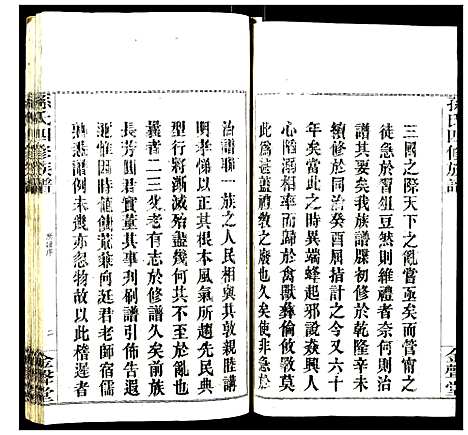 孫氏四修族譜
三國之際天下之亂嘗亟矣而管甯之
徒急於習俎豆然則維禮者奈何則宗
譜其要矣我族譜牒初修於乾隆辛未
續修於同治癸酉屈指計之今又六十
年矣當此之時異端蜂起邪說交興人
心陷溺率而歸於禽獸彝倫攸斁莫
此爲甚蓋禮教之廢也久矣使非急於
金聲堂
孫氏四修族譜
治譜聯一族之人民相與其敦親睦講
明孝悌以正其根本風氣所趨先民典
型行將漸滅殆盡幾何其不至於亂也
曩者二三父老有志於修譜久矣前族
長芳圃君實董其事刋刷譜引佈告遐
邇惟因時值兼向庭君老師宿儒
熟悉譜例未幾亦忽物故以此稽遲者
二
金聲堂